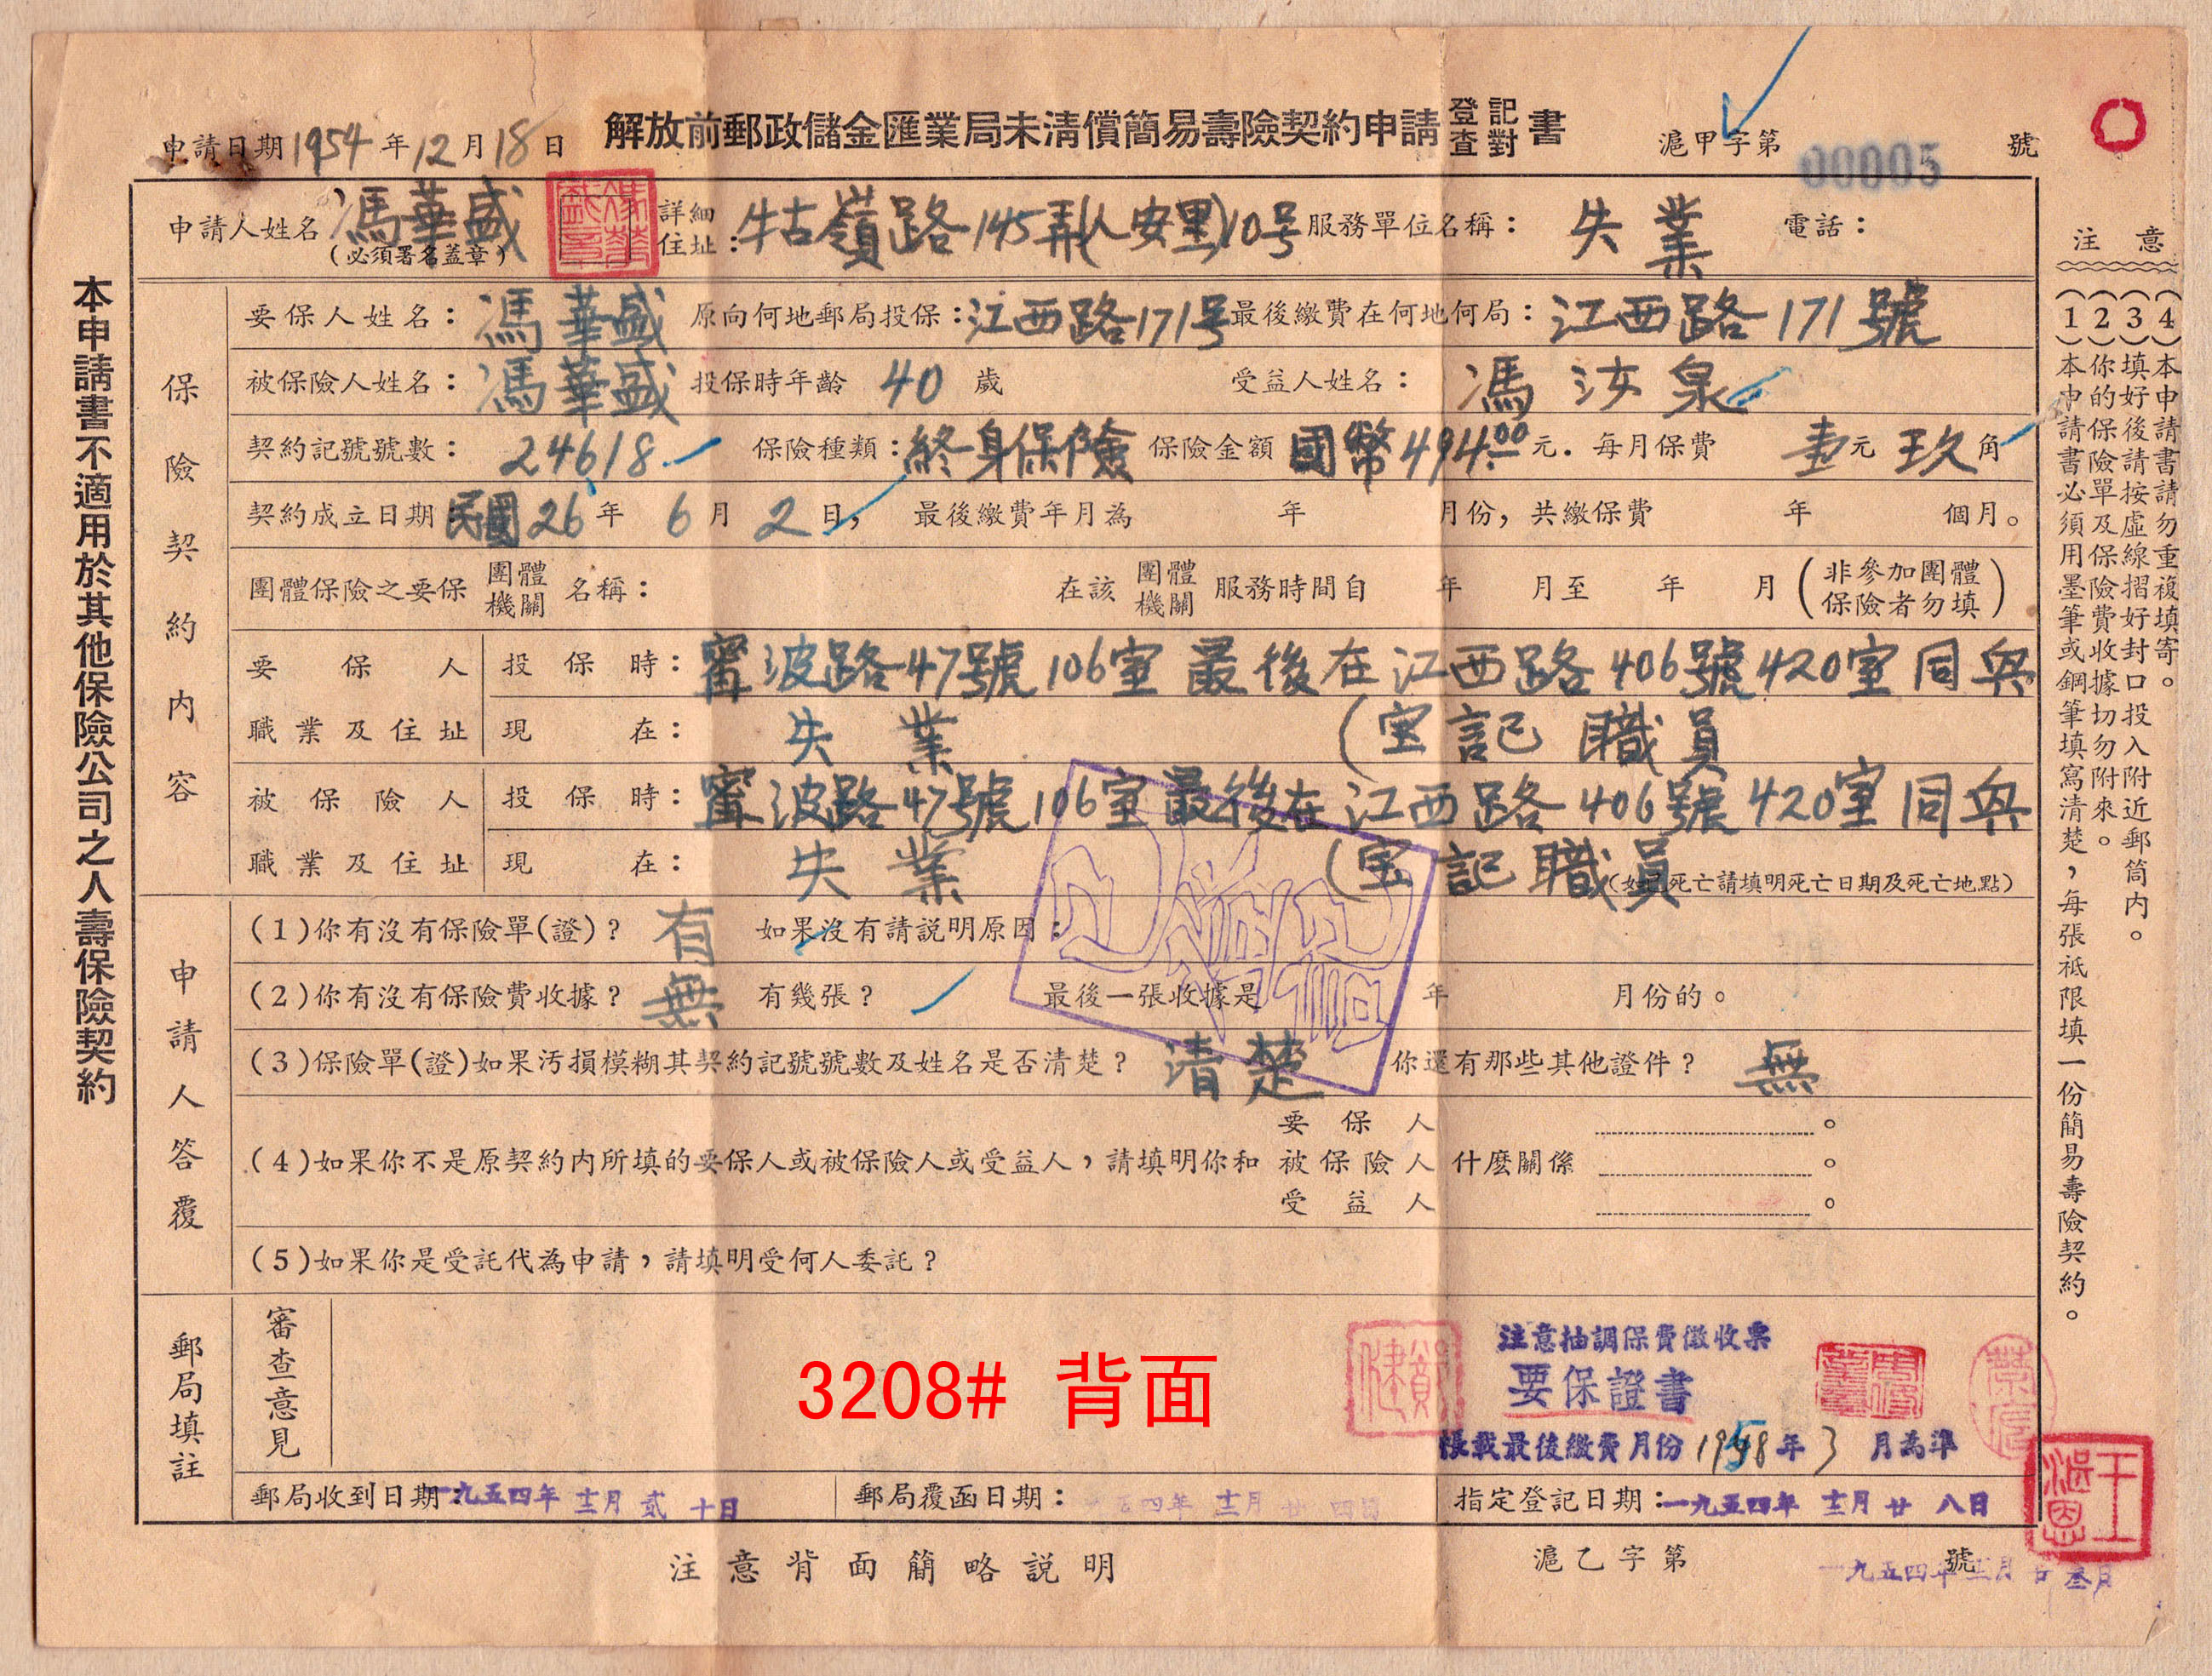 申請日期1954年12月18日
解放前郵政儲金匯業局未清償簡易壽險契約申請登記查對書
滬甲字第00005號
申請人姓名馮華盛
(必須署名蓋章)
詳細住址：牯嶺路145弄(人安里)10号
服務單位名稱：失業
電話：
本申請書不適用於其他保險公司之人壽保險契約
保險契約內容
要保人姓名：馮華盛 原向何地郵局投保：江西路171号 最後繳費在何地何局：江西路171號
被保險人姓名：馮華盛 投保時年齡40歲 受益人姓名：馮汝泉
契約記號號數：24618 保險種類：終身保險 保險金額國幣494.00元．每月保費壹元玖角
契約成立日期：民國26年6月2日，最後繳費年月為 年 月份，共繳保費 年 個月。
團體保險之要保團體機關名稱： 在該團體機關服務時間自 年 月至 年 月(非參加團體保險者勿填)
要保人職業及住址
投保時：甯波路47號106室最後在江西路406號420室同興
現在：失業 (宝記職員
被保險人職業及住址
投保時：甯波路47號106室最後在江西路406號420室同興
現在：失業 (宝記職員
(如已死亡請填明死亡日期及死亡地點)
申請人答覆
(1)你有沒有保險單(證)？有 如果沒有請說明原因：
(2)你有沒有保險費收據？無 有幾張？ 最後一張收據是 年 月份的。
(3)保險單(證)如果污損模糊其契約記號號數及姓名是否清楚？清楚 你還有那些其他證件？無
(4)如果你不是原契約內所填的要保人或被保險人或受益人，請填明你和
要保人
被保險人什麼關係
受益人
(5)如果你是受託代為申請，請填明受何人委託？
郵局填註
審查意見
3208# 背面
注意抽調保費徵收票
要保證書
帳載最後繳費月份1948年3月為準
郵局收到日期：一九五四年十二月貳十日
郵局覆函日期：一九五四年十二月廿四日
指定登記日期：一九五四年十二月廿八日
注意背面簡略說明
滬乙字第 號
一九五四年十二月廿叁日
注意
(1)本申請書必須用墨筆或鋼筆填寫清楚，每張祇限填一份簡易壽險契約。
(2)你的保險單及保險費收據切勿附來。
(3)填好後請按虛線摺好封口投入附近郵筒內。
(4)本申請書請勿重複填寄。